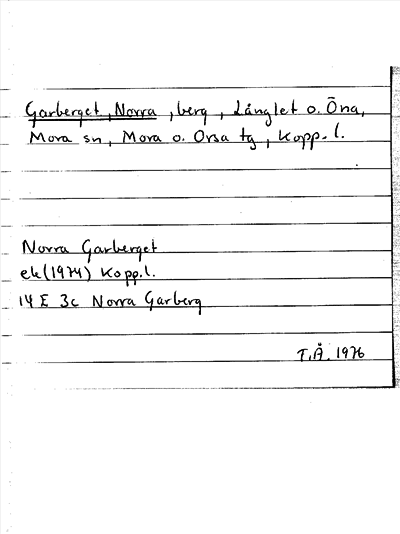 Garberget, Norra, berg, Långlet o. Öna,
Mora sn, Mora o. Orsa tg, Kopp. l.
Norra Garberget
ek (1974) Kopp.l.
14 E 3c Norra Garberg
T.Å. 1976